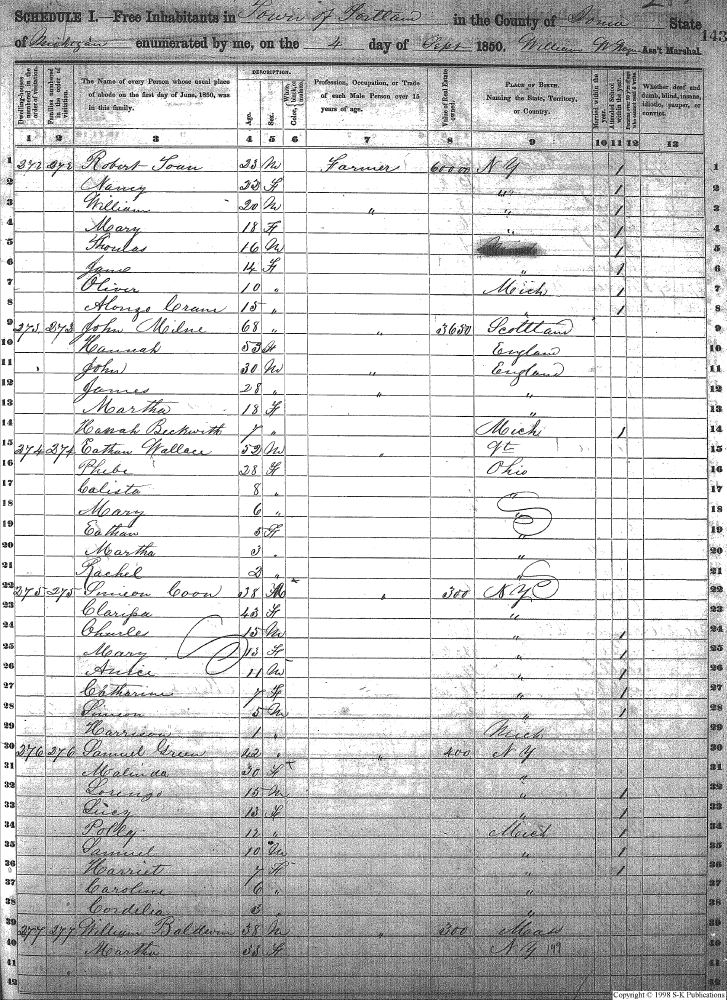 SCHEDULE I.—Free Inhabitants in Town of Portland in the County of Ionia State
of Michigan enumerated by me, on the 4 day of Sept 1850. William W Ass't Marshal. 143
Dwelling-houses numbered in the order of visitation.
Families numbered in the order of visitation.
The Name of every Person whose usual place of abode on the first day of June, 1850, was in this family.
DESCRIPTION.
Age.
Sex.
Color, White, black, or mulatto.
Profession, Occupation, or Trade of each Male Person over 15 years of age.
Value of Real Estate owned.
PLACE OF BIRTH. Naming the State, Territory, or Country.
Married within the year.
Attended School within the year.
Whether deaf and dumb, blind, insane, idiotic, pauper, or convict.
1 2 3 4 5 6 7 8 9 10 11 12 13
1 272 272 Robert 23 M Farmer 6000 N Y / 1
2 Nancy 22 F " / 2
3 William 20 M " " / 3
4 Mary 18 F " / 4
5 Thomas 16 M / 5
6 Jane 14 F " / 6
7 Oliver 10 " Mich / 7
8 Alonzo Cram 15 " " / 8
9 273 273 John Milne 68 " " 3650 Scottland 9
10 Hannah 53 F England 10
11 John 30 M " England 11
12 James 28 " " " 12
13 Martha 18 F " 13
14 Hanah Beckwith 7 " Mich / 14
15 274 274 Eathan Wallace 52 M Vt 15
16 Phebe 28 F Ohio 16
17 Calista 8 " " 17
18 Mary 6 " " 18
19 Eathan 5 F " 19
20 Martha 3 " " 20
21 Rachel 2 " " 21
22 275 275 Simeon Coon 38 M " 300 N Y 22
23 Clarissa 43 F " 23
24 Charles 15 M " / 24
25 Mary 13 F " / 25
26 11 M " / 26
27 Catharine 7 F " / 27
28 Simeon 5 M " / 28
29 Harrison 1 " Mich 29
30 276 276 Samuel Green 42 " " 400 N Y 30
31 Malinda 30 F " 31
32 Lorenzo 15 M " / 32
33 Lucy 13 F " / 33
34 Polly 12 " Mich / 34
35 Samuel 10 M " / 35
36 Harriet 7 F " / 36
37 Caroline 6 " " 37
38 Cordelia 3 " " 38
39 277 277 William Baldwin 38 M " 300 Mass 39
40 Martha 33 F N Y 40
41 41
42 42
Copyright © 1998 S-K Publications